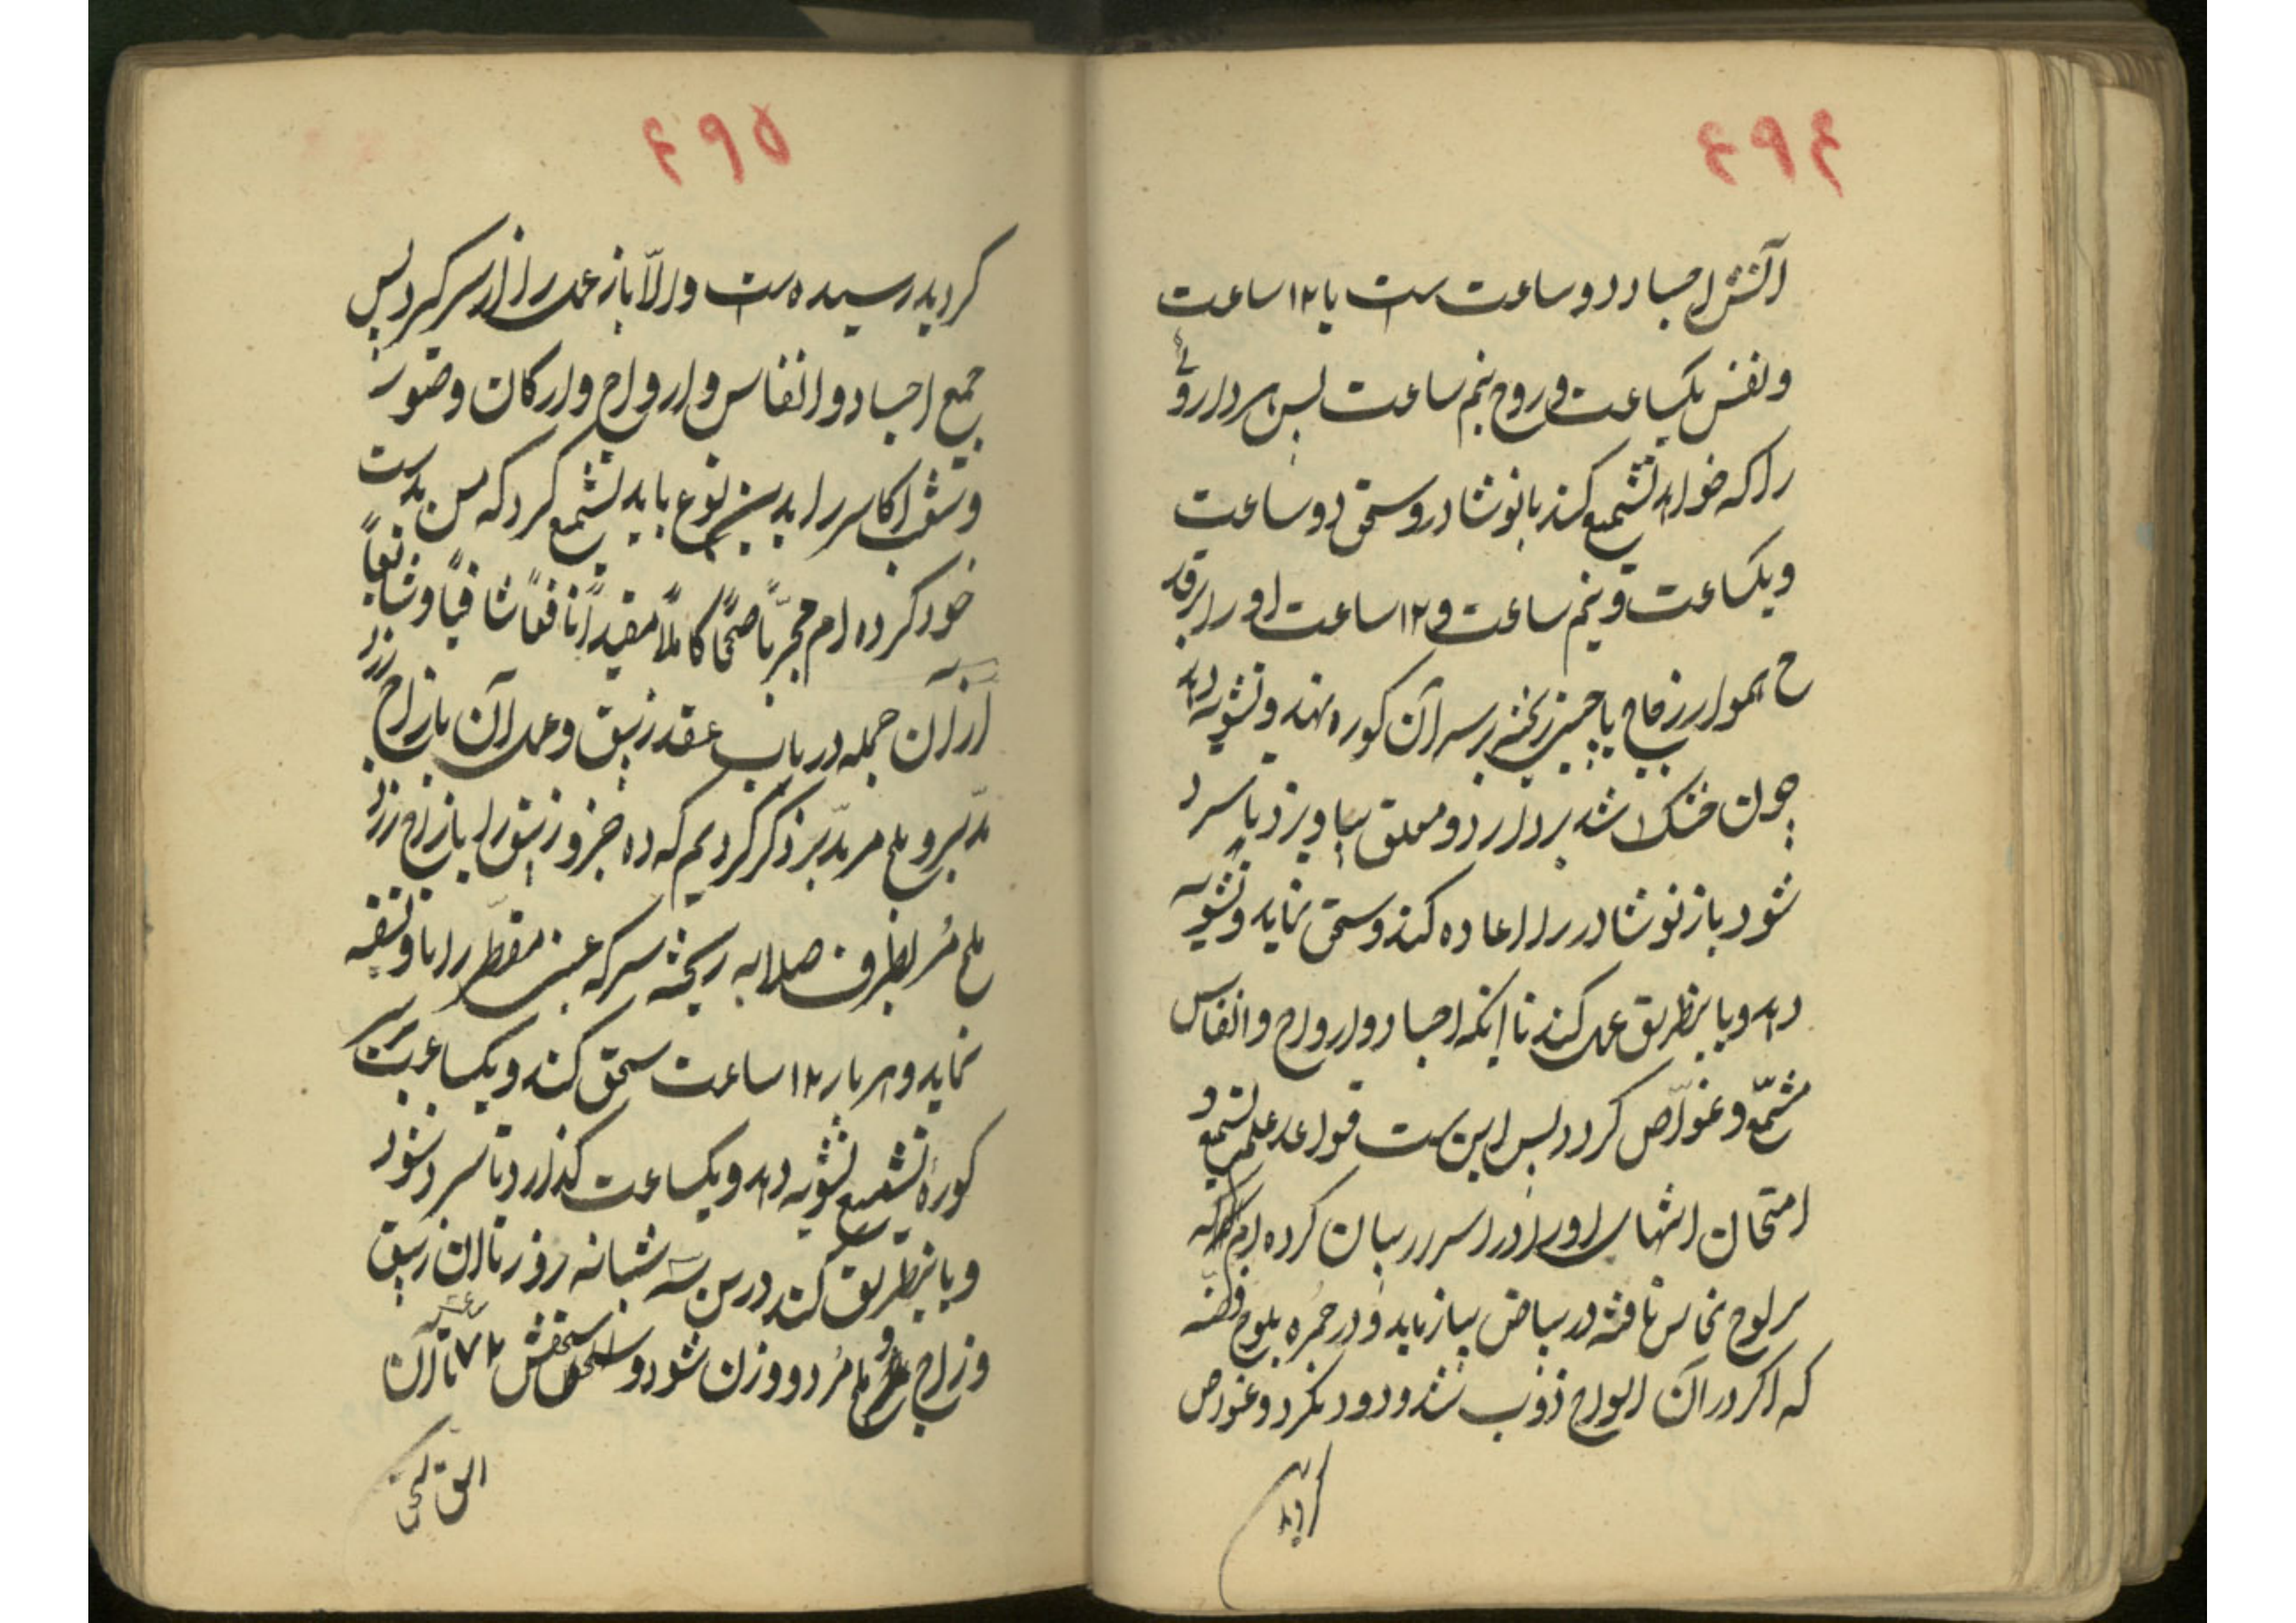 ۴۹۴
آتش اجساد دو ساعت است یا ۱۲ ساعت
و نفس یکساعت و روح نیم ساعت پس هر داروئی
را که خواهد تشمیع کند با نوشادر و سحق دو ساعت
و یکساعت و نیم ساعت و ۱۲ ساعت او را بر قد
ح هموار زجاج یا چینی ریخته بر سر آن کوره نهد و تشویه دهد
چون خشک شد بردارد و معلق بیاویزد تا سرد
شود باز نوشادر را اعاده کند و سحق نماید و تشویه
دهد و باینطریق عمل کند تا اینکه اجساد و ارواح و انفاس
مشمّع و غوّاص کردد پس این است قواعد علم تشمیع و
امتحان انتهای او را در اسرار بیان کرده ام که
بر لوح نحاس تافته در بیاض بیازماید و در حمره بلوح فضّه
که اکر در آن الواح ذوب شد و دود نکرد و غواص
کردید
۴۹۵
کردید رسیده است و الّا باز عمل را از سر کیرد پس
جمیع اجساد و انفاس و ارواح و ارکان و
را بدین نوع باید تشمیع کرد که من بدست
خود کرده ام مجرّباً صحیحاً کاملاً مفیداً نافعاً شافیاً و
از آن جمله در باب عقد زیبق و عمل آن با زاج زرد
مدبّر و ملح مر مدبّر ذکر کردیم که ده جزو زیبق را با زاج زرد
ملح مُر بظرف صلابه ریخته سرکه عنب مقطّر را با و تسقیه
نماید و هر بار ۱۲ ساعت سحق کند و یکساعت بر سر
کورۀ تشمیع تشویه دهد و یکساعت کذارد تا سرد شود
و باینطریق کند در سه شبانه روز تا ان زیبق
و زاج و ملح مُر دو وزن شود و سحقش ۷۲ ساعت تا آن